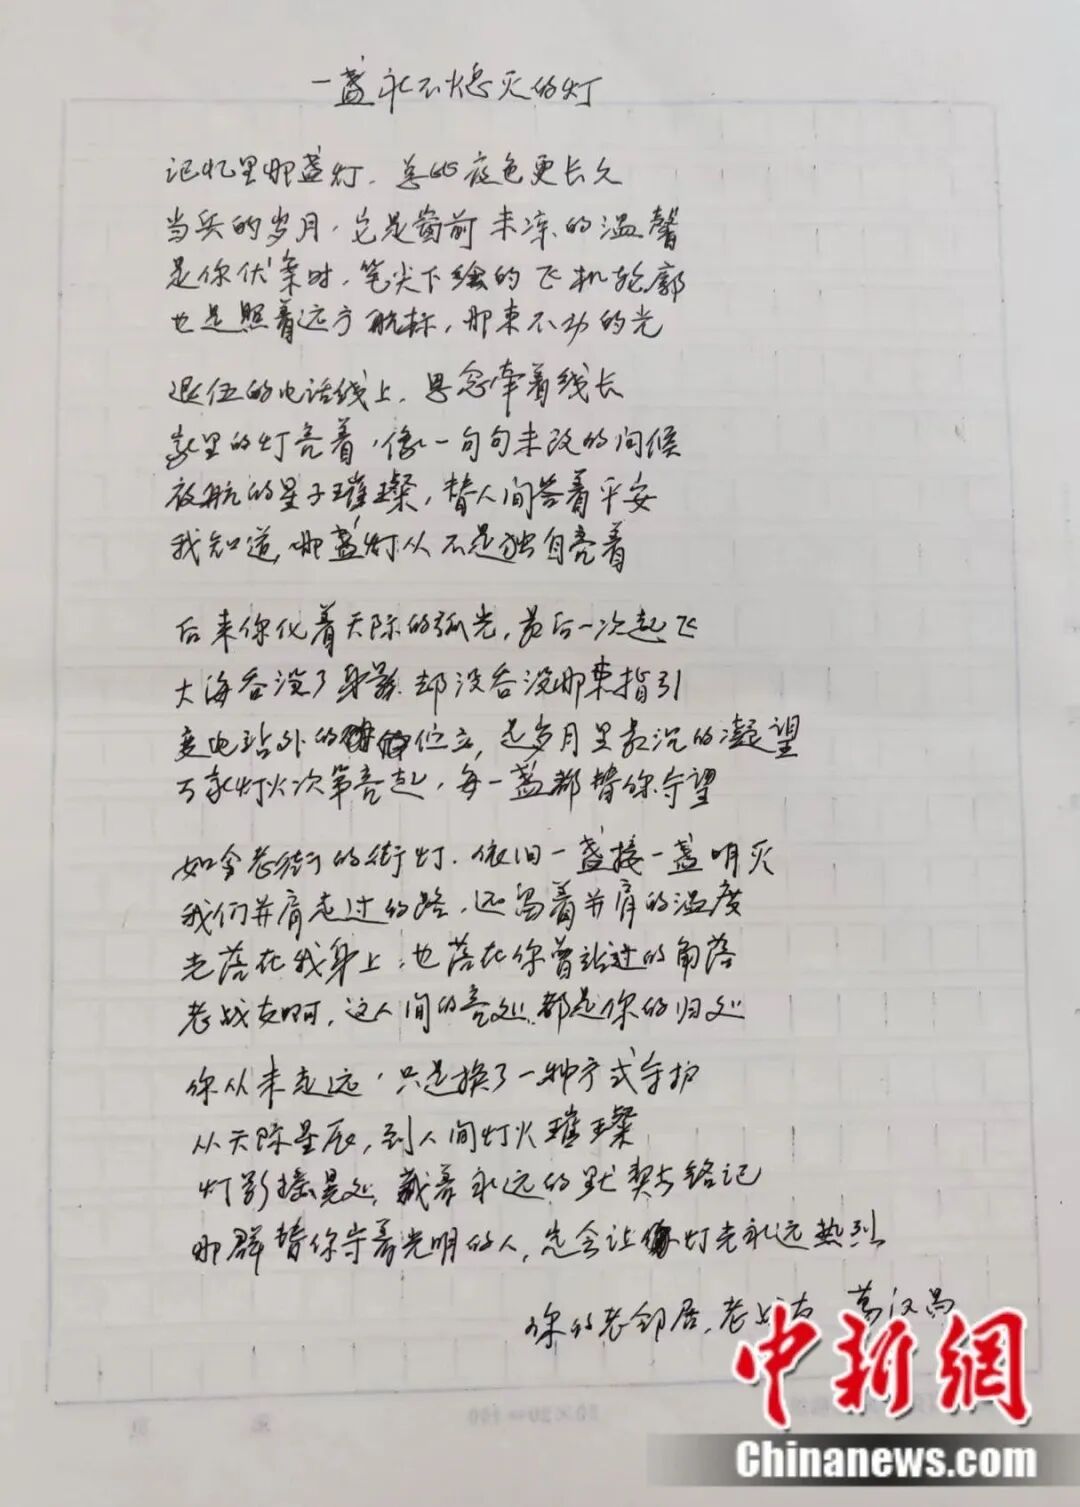 一盏永不熄灭的灯
记忆里那盏灯，总比夜色更长久
当兵的岁月，它是窗前未凉的温馨
是你伏案时，笔尖下绘的飞机轮廓
也是照着远方航标，那束不灭的光
退伍的电话线上，思念牵着线长
家里的灯亮着，像一句句未改的问候
夜航的星子璀璨，替人间答着平安
我知道，那盏灯从不是独自亮着
后来你化着天际的弧光，最后一次起飞
大海吞没了身影，却没吞没那束指引
变电站外的伫立，是岁月里最沉的凝望
万家灯火次第亮起，每一盏都替你守望
如今老街的街灯，依旧一盏接一盏明灭
我们并肩走过的路，还留着并肩的温度
光落在我身上，也落在你曾站过的角落
老战友啊，这人间的亮处，都是你的归处
你从未走远，只是换了一种方式守护
从天际星辰，到人间灯火璀璨
灯影摇晃处，藏着永远的默契与铭记
那群替你守着光明的人，总会让灯光永远热烈
你的老邻居，老战友 葛汉昌
中新網
Chinanews.com
20×20=400